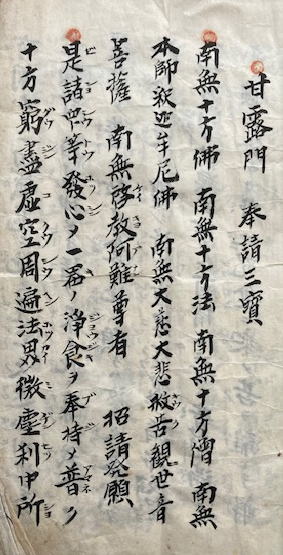 甘露門　奉請三寶
南無十方佛　南無十方法　南無十方僧　南無
本師釈迦牟尼佛　南無大慈大悲救苦觀世音
菩薩　南無啓教阿難尊者　招請発願
是諸衆等發心〆一器ノ淨食ヲ奉持〆普ク
十方窮盡虚空周遍法界微塵刹中所